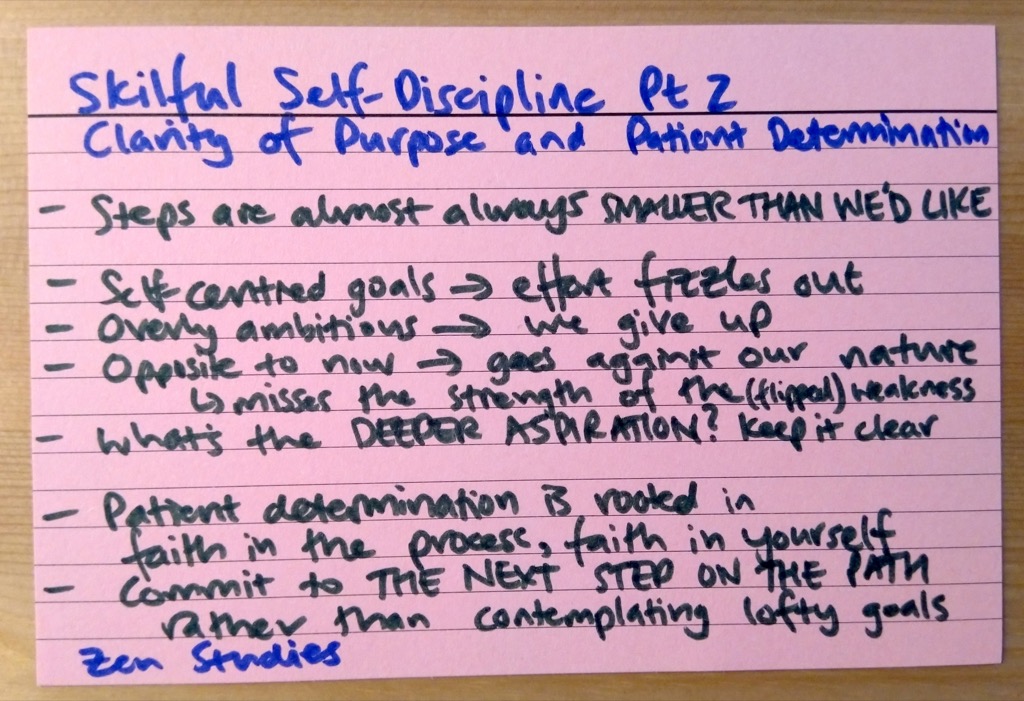 Skilful Self-Discipline Pt 2
Clarity of Purpose and Patient Determination
- Steps are almost always SMALLER THAN WE'D LIKE
- Self-centred goals → effort fizzles out
- Overly ambitious → we give up
- Opposite to now → goes against our nature
↳ misses the strength of the (flipped) weakness
- What's the DEEPER ASPIRATION? Keep it clear
- Patient determination is rooted in
faith in the process, faith in yourself
- Commit to THE NEXT STEP ON THE PATH
rather than contemplating lofty goals
Zen Studies